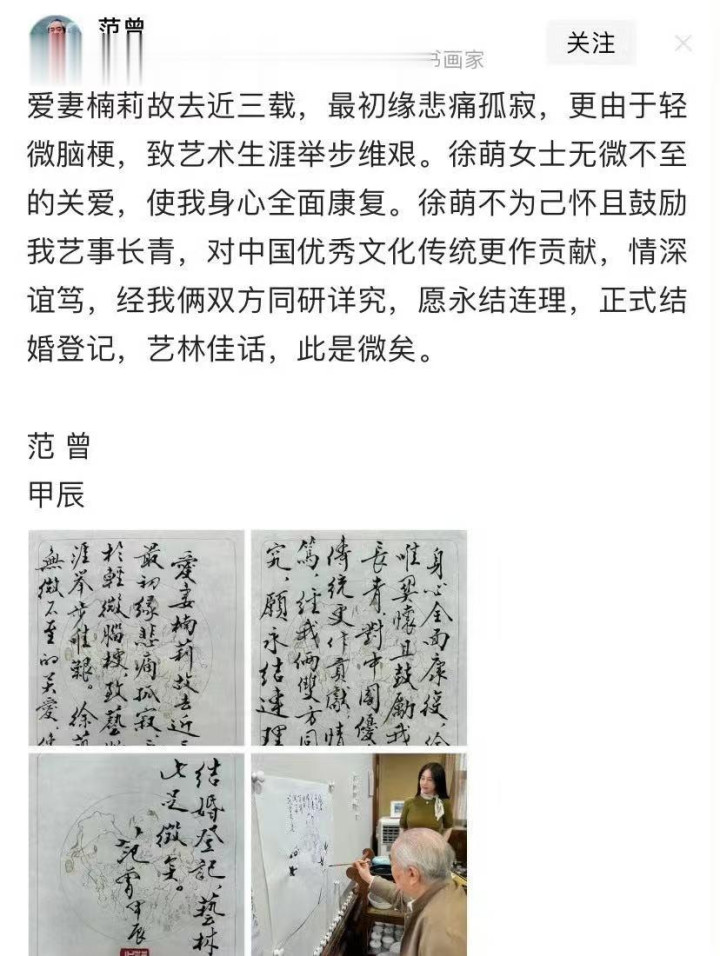 范曾
书画家
关注
爱妻楠莉故去近三载，最初缘悲痛孤寂，更由于轻
微脑梗，致艺术生涯举步维艰。徐萌女士无微不至
的关爱，使我身心全面康复。徐萌不为己怀且鼓励
我艺事长青，对中国优秀文化传统更作贡献，情深
谊笃，经我俩双方同研详究，愿永结连理，正式结
婚登记，艺林佳话，此是微矣。
范 曾
甲辰
愛妻楠莉故去近三
最初缘悲痛孤寂，
於輕微腦梗，致藝
涯举步维艱。徐萌
無微不至的关爱，使
身心全面康復，徐
懷且鼓勵我
長青，對中國優
傳統更作貢獻，情
篤，經我俩雙方同
究，願永结連理
结婚登記，藝林
此是微矣。
范曾甲辰